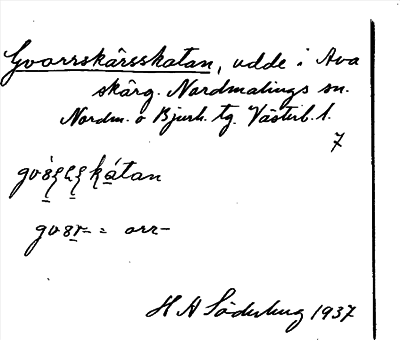 Gvorrskårsskatan, udde i Ava
skärg. Nordmalings sn.
Nordm. o Bjurh. tg. Västerb. l.
7
kátan
orr-
H A Söderberg 1937